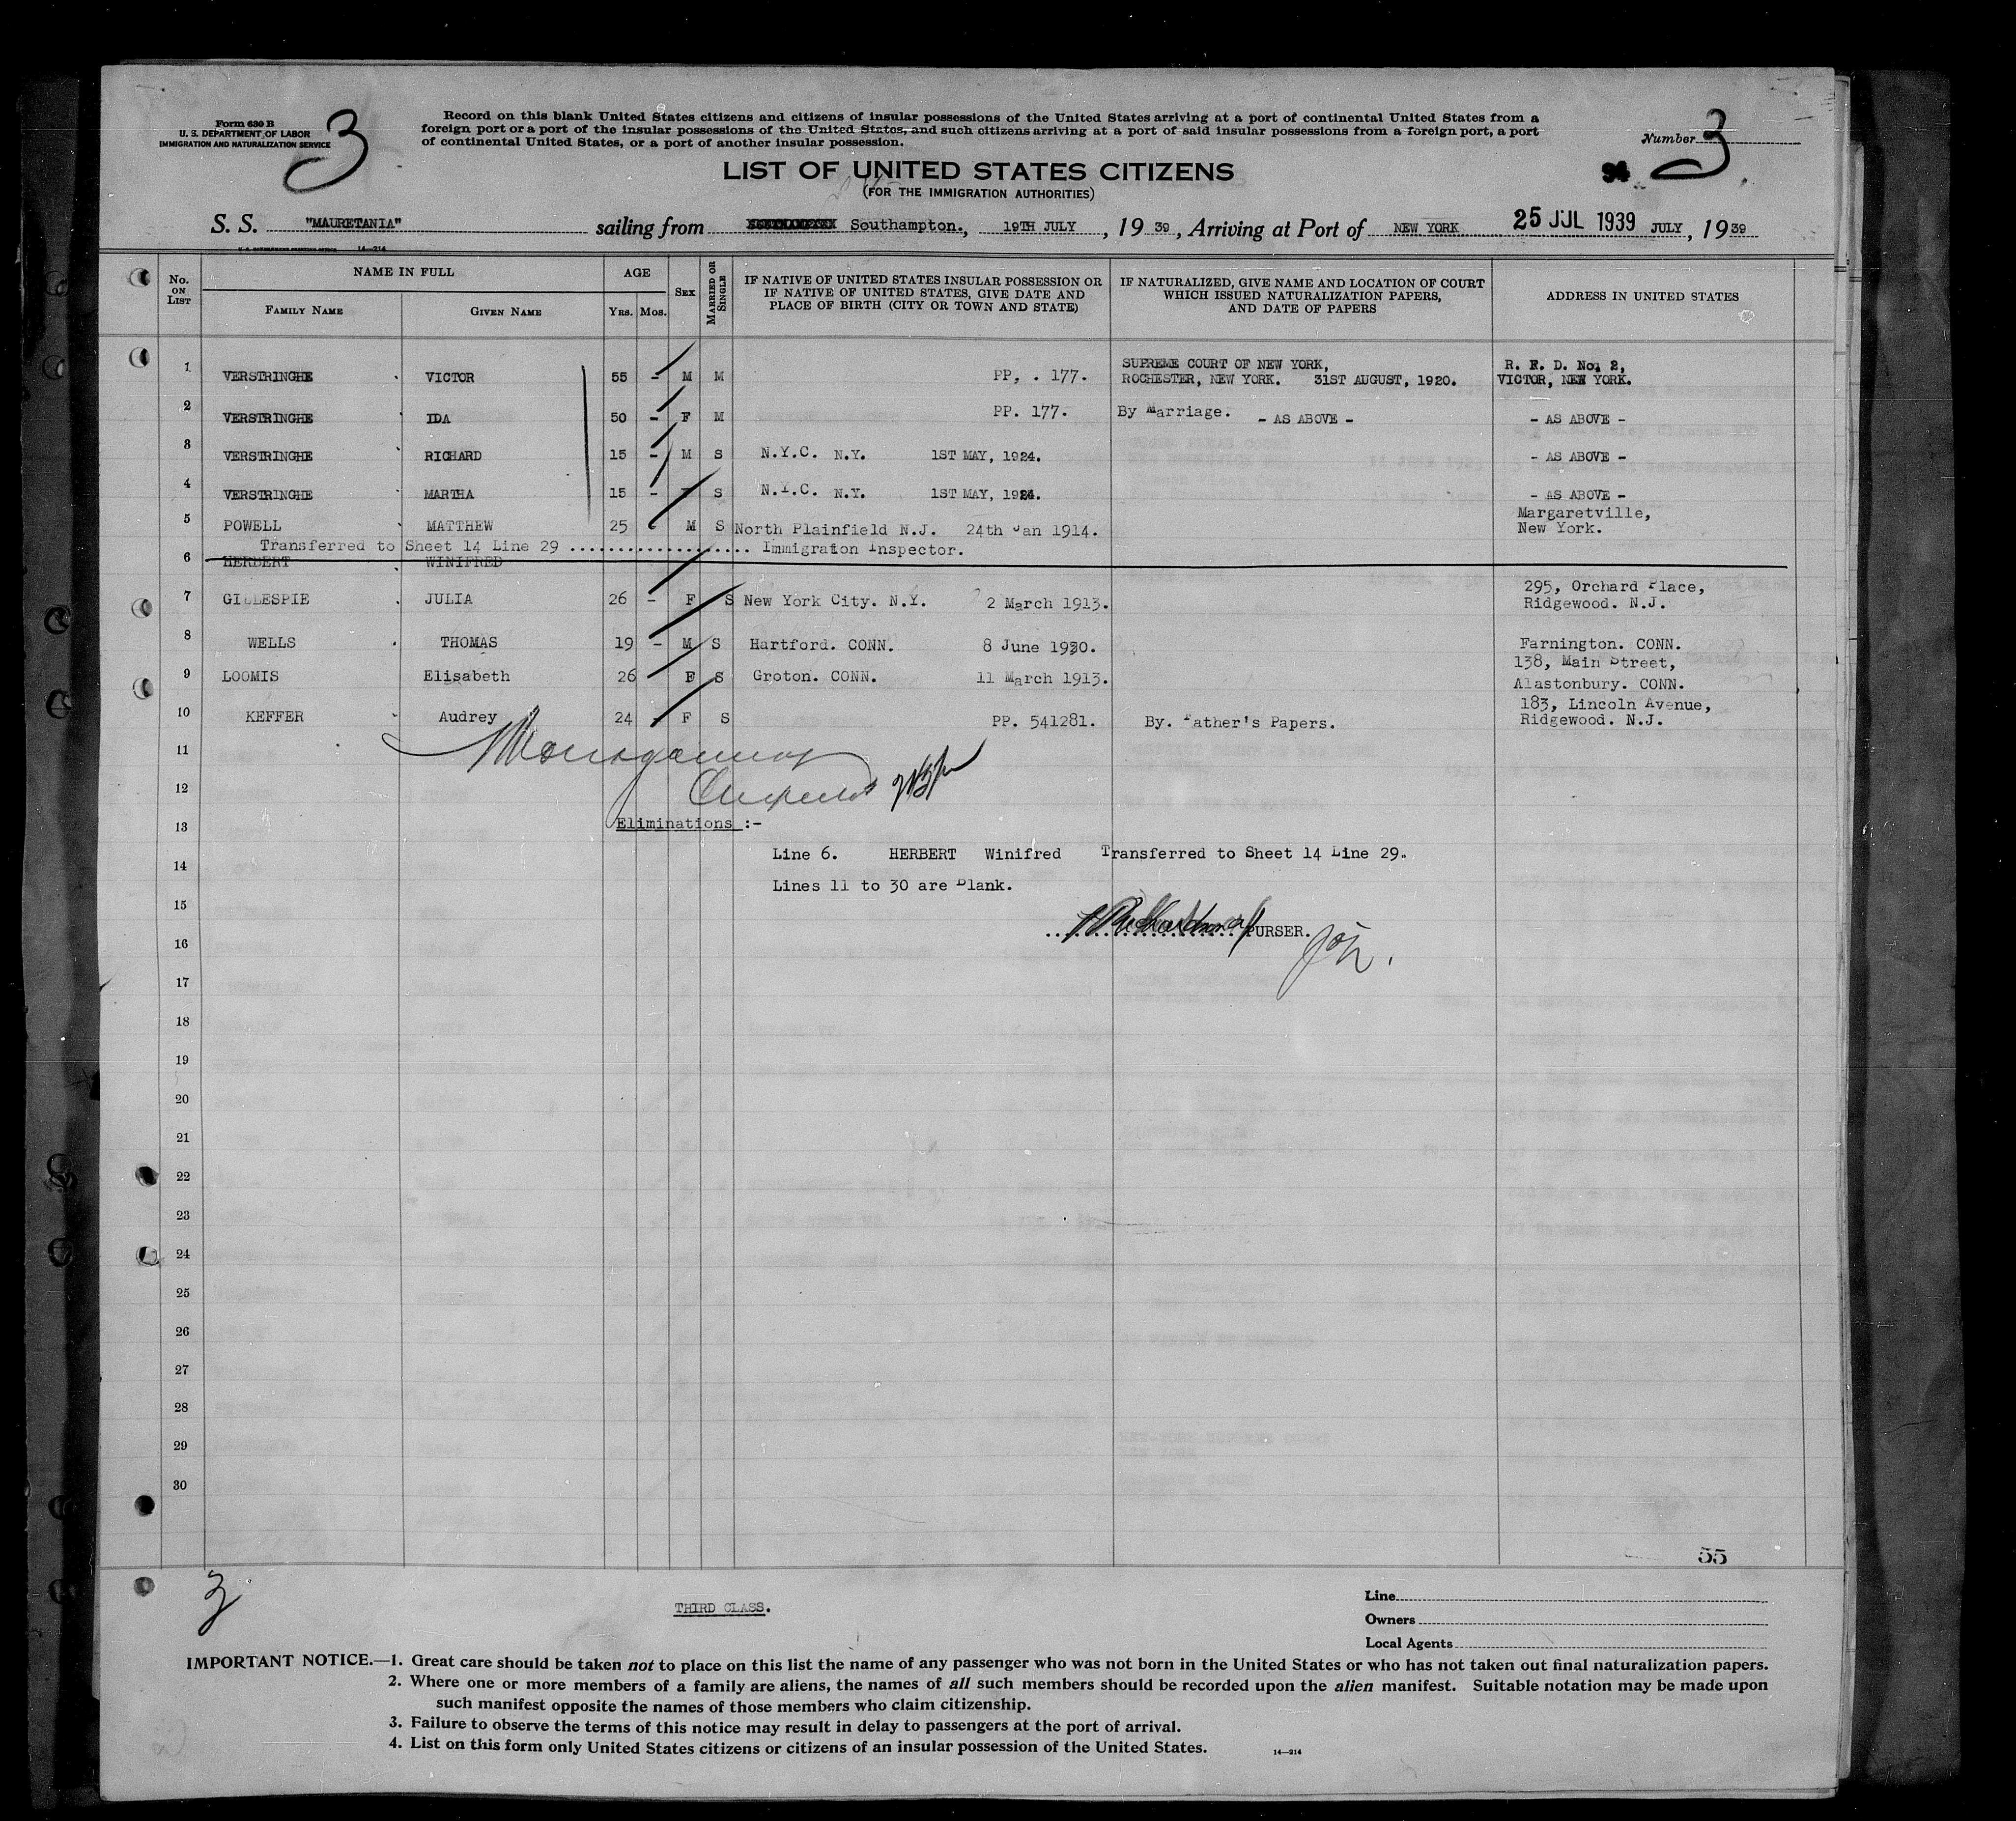 Form 630 B
U. S. DEPARTMENT OF LABOR
IMMIGRATION AND NATURALIZATION SERVICE
3
Record on this blank United States citizens and citizens of insular possessions of the United States arriving at a port of continental United States from a
foreign port or a port of the insular possessions of the United States, and such citizens arriving at a port of said insular possessions from a foreign port, a port
of continental United States, or a port of another insular possession.
Number 3
94
LIST OF UNITED STATES CITIZENS
(FOR THE IMMIGRATION AUTHORITIES)
S. S. "MAURETANIA" sailing from Southampton., 19TH JULY, 19 39, Arriving at Port of NEW YORK 25 JUL 1939 JULY, 19 39
14—214
No. ON LIST
NAME IN FULL
FAMILY NAME GIVEN NAME
AGE
YRS. MOS.
SEX
MARRIED OR SINGLE
IF NATIVE OF UNITED STATES INSULAR POSSESSION OR
IF NATIVE OF UNITED STATES, GIVE DATE AND
PLACE OF BIRTH (CITY OR TOWN AND STATE)
IF NATURALIZED, GIVE NAME AND LOCATION OF COURT
WHICH ISSUED NATURALIZATION PAPERS,
AND DATE OF PAPERS
ADDRESS IN UNITED STATES
1 VERSTRINGHE VICTOR 55 - M M PP, . 177. SUPREME COURT OF NEW YORK, R. F. D. No. 2,
ROCHESTER, NEW YORK. 31ST AUGUST, 1920. VICTOR, NEW YORK.
2 VERSTRINGHE IDA 50 - F M PP. 177. By Marriage. - AS ABOVE - - AS ABOVE -
3 VERSTRINGHE RICHARD 15 - M S N.Y.C. N.Y. 1ST MAY, 1924. - AS ABOVE -
4 VERSTRINGHE MARTHA 15 - F S N.Y.C. N.Y. 1ST MAY, 1924. - AS ABOVE -
5 POWELL MATTHEW 25 M S North Plainfield N.J. 24th Jan 1914. Margaretville,
New York.
Transferred to Sheet 14 Line 29 ................... Immigration Inspector.
6 HERBERT WINIFRED
7 GILLESPIE JULIA 26 - F S New York City. N.Y. 2 March 1913. 295, Orchard Place,
Ridgewood. N.J.
8 WELLS THOMAS 19 - M S Hartford. CONN. 8 June 1920. Farnington. CONN.
9 LOOMIS Elisabeth 26 F S Groton. CONN. 11 March 1913. 138, Main Street,
Alastonbury. CONN.
10 KEFFER Audrey 24 - F S PP. 541281. By. Father's Papers. 183, Lincoln Avenue,
Ridgewood. N.J.
11
12
13 Eliminations :-
Line 6. HERBERT Winifred Transferred to Sheet 14 Line 29.
14
Lines 11 to 30 are Blank.
15
PURSER.
16
17
18
19
20
21
22
23
24
25
26
27
28
29
30
55
3
THIRD CLASS.
Line
Owners
Local Agents
IMPORTANT NOTICE.—1. Great care should be taken not to place on this list the name of any passenger who was not born in the United States or who has not taken out final naturalization papers.
2. Where one or more members of a family are aliens, the names of all such members should be recorded upon the alien manifest. Suitable notation may be made upon
such manifest opposite the names of those members who claim citizenship.
3. Failure to observe the terms of this notice may result in delay to passengers at the port of arrival.
4. List on this form only United States citizens or citizens of an insular possession of the United States.
14—214